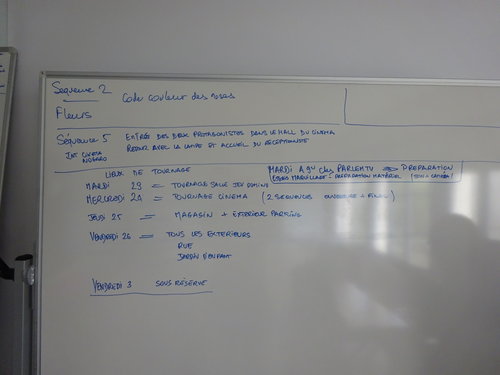 Séquence 2 Code couleur des roses
Fleurs
Séquence 5 ENTRÉE DES DEUX PROTAGONISTES DANS LE HALL DU CINEMA
INT CINEMA RETOUR AVEC LA LAMPE ET ACCUEIL DU RECEPTIONISTE
NOGARO
LIEUX DE TOURNAGE
MARDI A 9H chez PARLEMTV => PREPARATION
MAQUILLAGE - PREPARATION MATÉRIEL (SON & CAMÉRA)
MARDI 23 = TOURNAGE SALLE JEU DOMINO
MERCREDI 24 = TOURNAGE CINEMA (2 SEQUENCES OUVERTURE + FINAL)
JEUDI 25 = MAGASIN + EXTERIEUR PARKING
VENDREDI 26 = TOUS LES EXTERIEURS
RUE
JARDIN D'ENFANT
VENDREDI 3 SOUS RÉSERVE